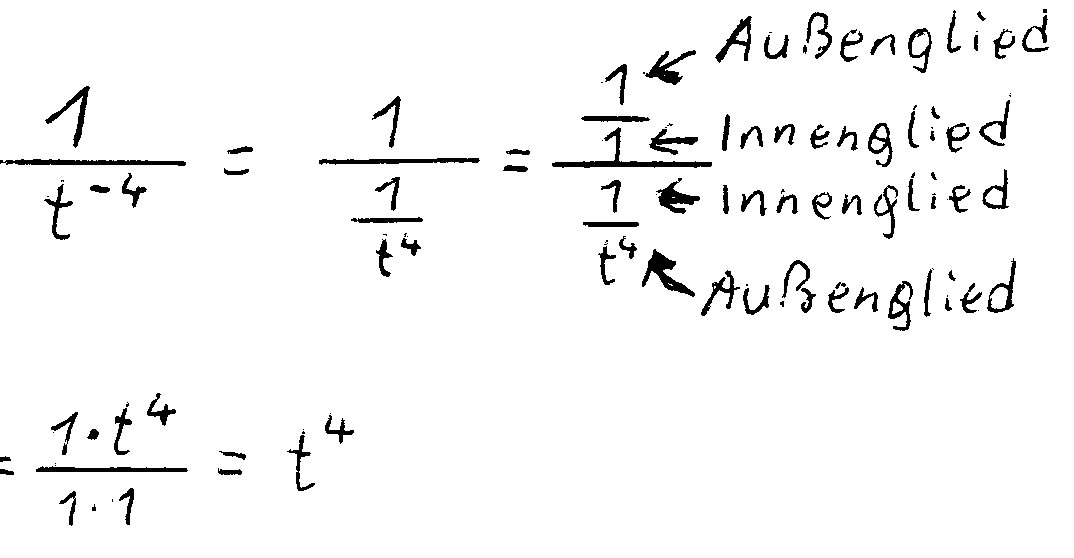 1/t⁻⁴ = 1/(1/t⁴) = (1/1)/(1/t⁴)
Außenglied
Innenglied
Innenglied
Außenglied
= (1·t⁴)/(1·1) = t⁴